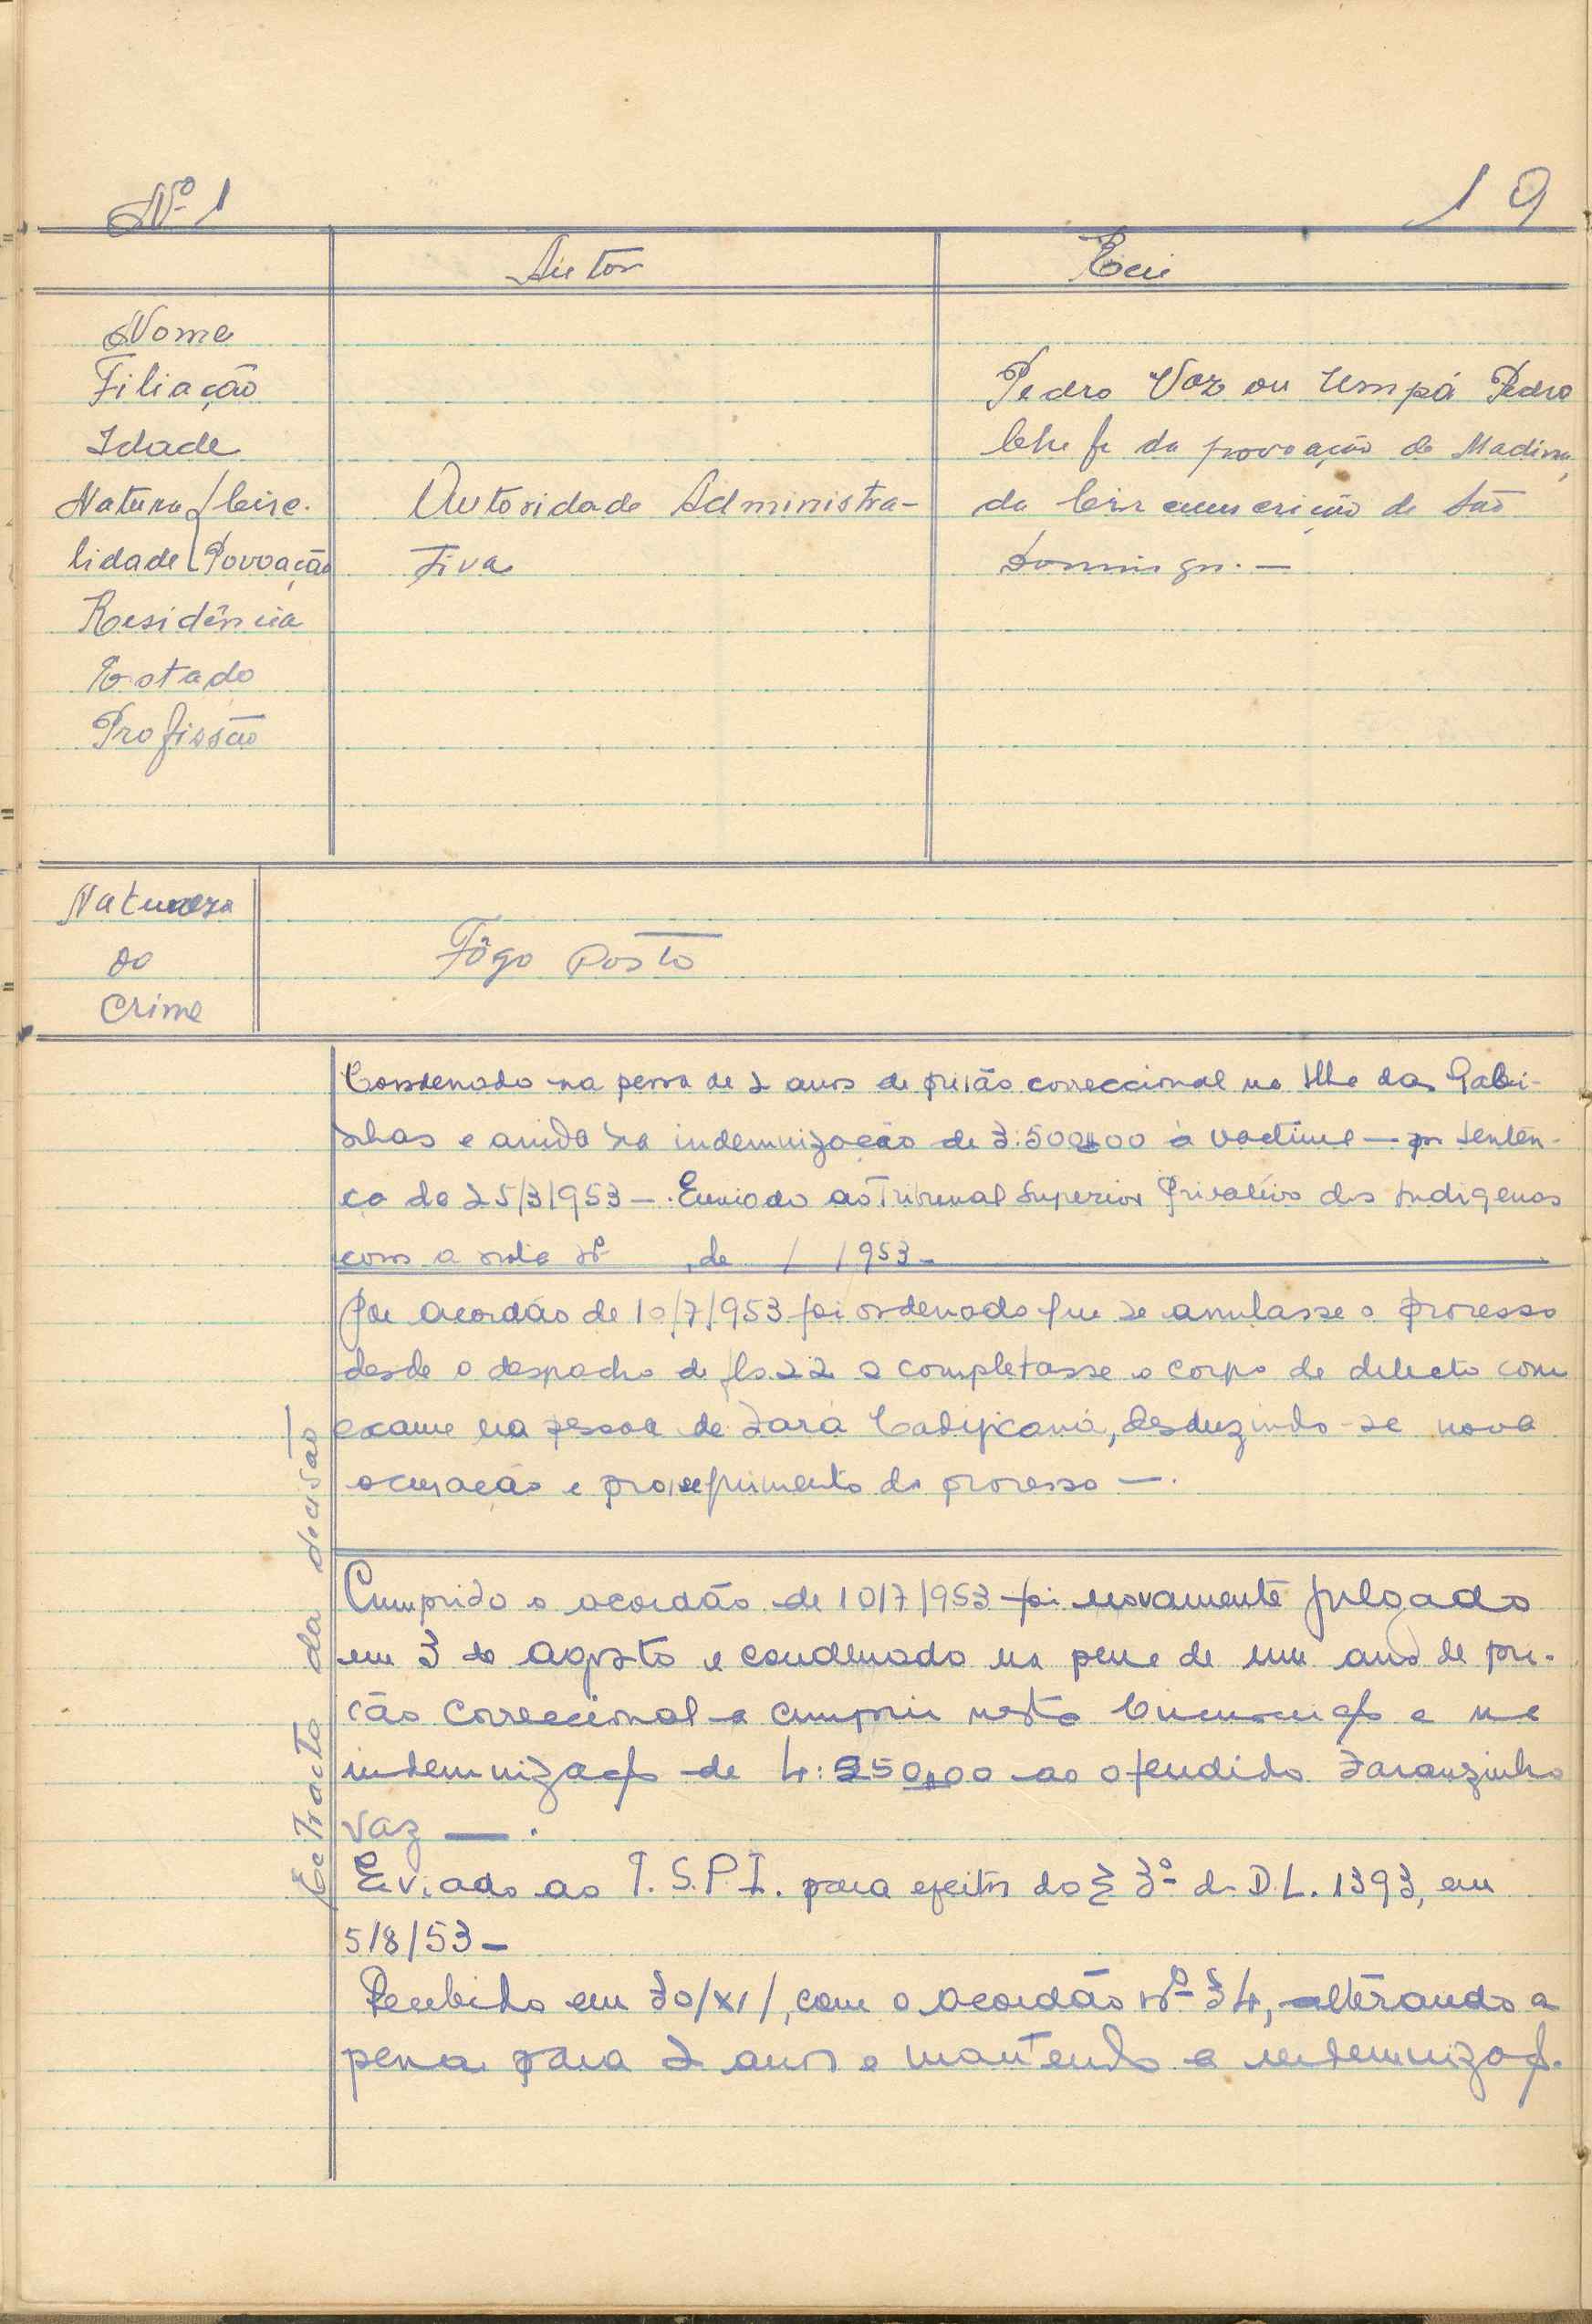 Nº 1
19
Autor
Reu
Nome
Filiação
Pedro Vaz ou Umpá Pedro
Idade
Chefe da povoação de Madina,
Natura Circ.
Autoridade Administra-
da Circumscrição de São
lidade Povoação
tiva
Domingos. —
Residência
Estado
Profissão
Natureza
do
Crime
Fôgo Posto
Extracto da decisão
Condenado na pena de 2 anos de prisão correccional na Ilha das Gali-
nhas e ainda na indemnização de 3:500$00 à vactima — por senten-
ça de 25/3/953 —. Enviado ao Tribunal Superior Privativo dos Indigenas
com a nota Nº , de / /953 —
Por acordão de 10/7/953 foi ordenado que se anulasse o processo
desde o despacho de fls. 22 e completasse o corpo de delicto com
exame na pessoa de Zara, desduzindo-se nova
acusação e proseguimento do processo —.
Cumprido o acordão de 10/7/953 foi novamente julgado
em 3 de agosto e condenado na pena de um ano de pri-
são correccional a cumprir nesta e na
de 4:250$00 ao ofendido Zaranzinho
Vaz —.
Eviado ao T.S.P.I. para efeitos do § 3º do D.L. 1393, em
5/8/53 —
Recebido em 30/XI/, com o acordão Nº 34, alterando a
pena para 2 anos e mantendo a